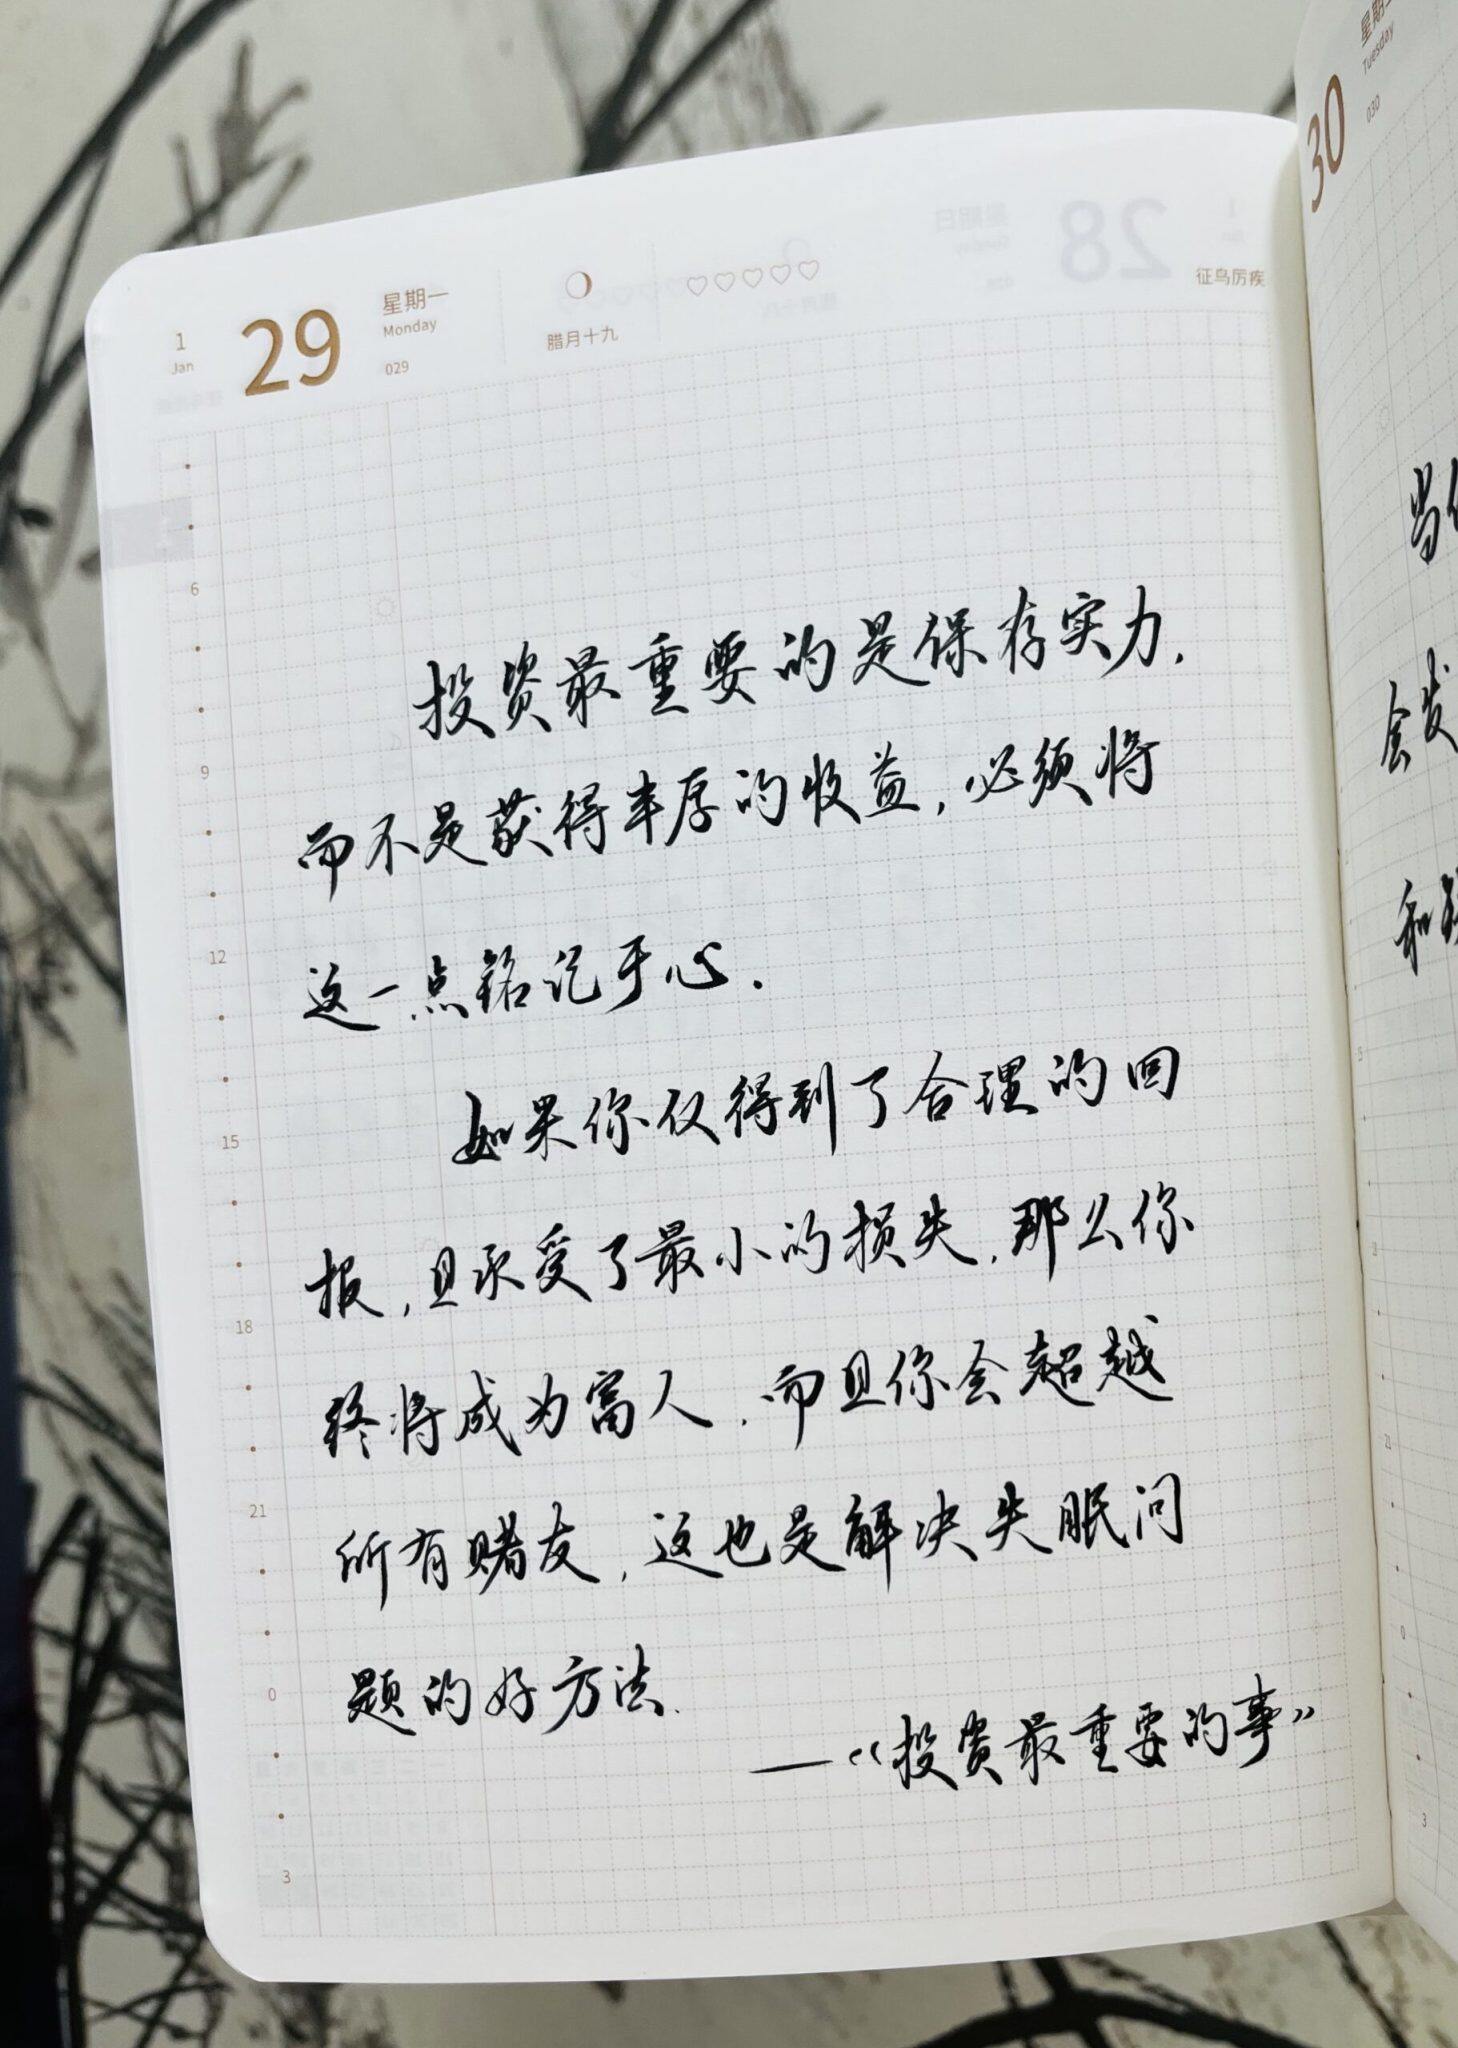 1
Jan
29
星期一
Monday
029
腊月十九
征鸟厉疾
投资最重要的是保存实力,
而不是获得丰厚的收益,必须将
这一点铭记于心.
如果你仅得到了合理的回
报,且承受了最小的损失,那么你
终将成为富人.而且你会超越
所有赌友,这也是解决失眠问
题的好方法.
—《投资最重要的事》
6
9
12
15
18
21
0
3
30
星期二
Tuesday
030
当
会发
和
0
3
28
星期日
Sunday